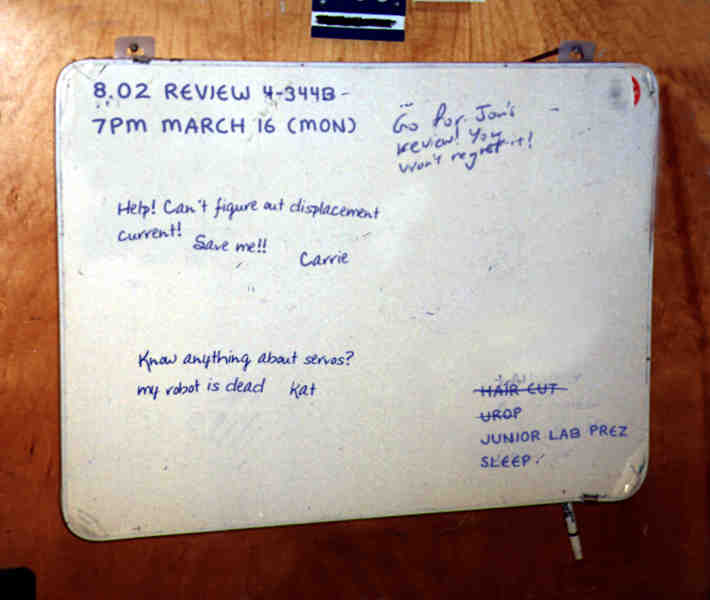 8.02 REVIEW 4-344B -
7PM MARCH 16 (MON)
Go for Jon's
review! You
won't regret it!
Help! Can't figure out displacement
current!
Save me!!
Carrie
Know anything about servos?
my robot is dead Kat
HAIR CUT
UROP
JUNIOR LAB PREZ
SLEEP.